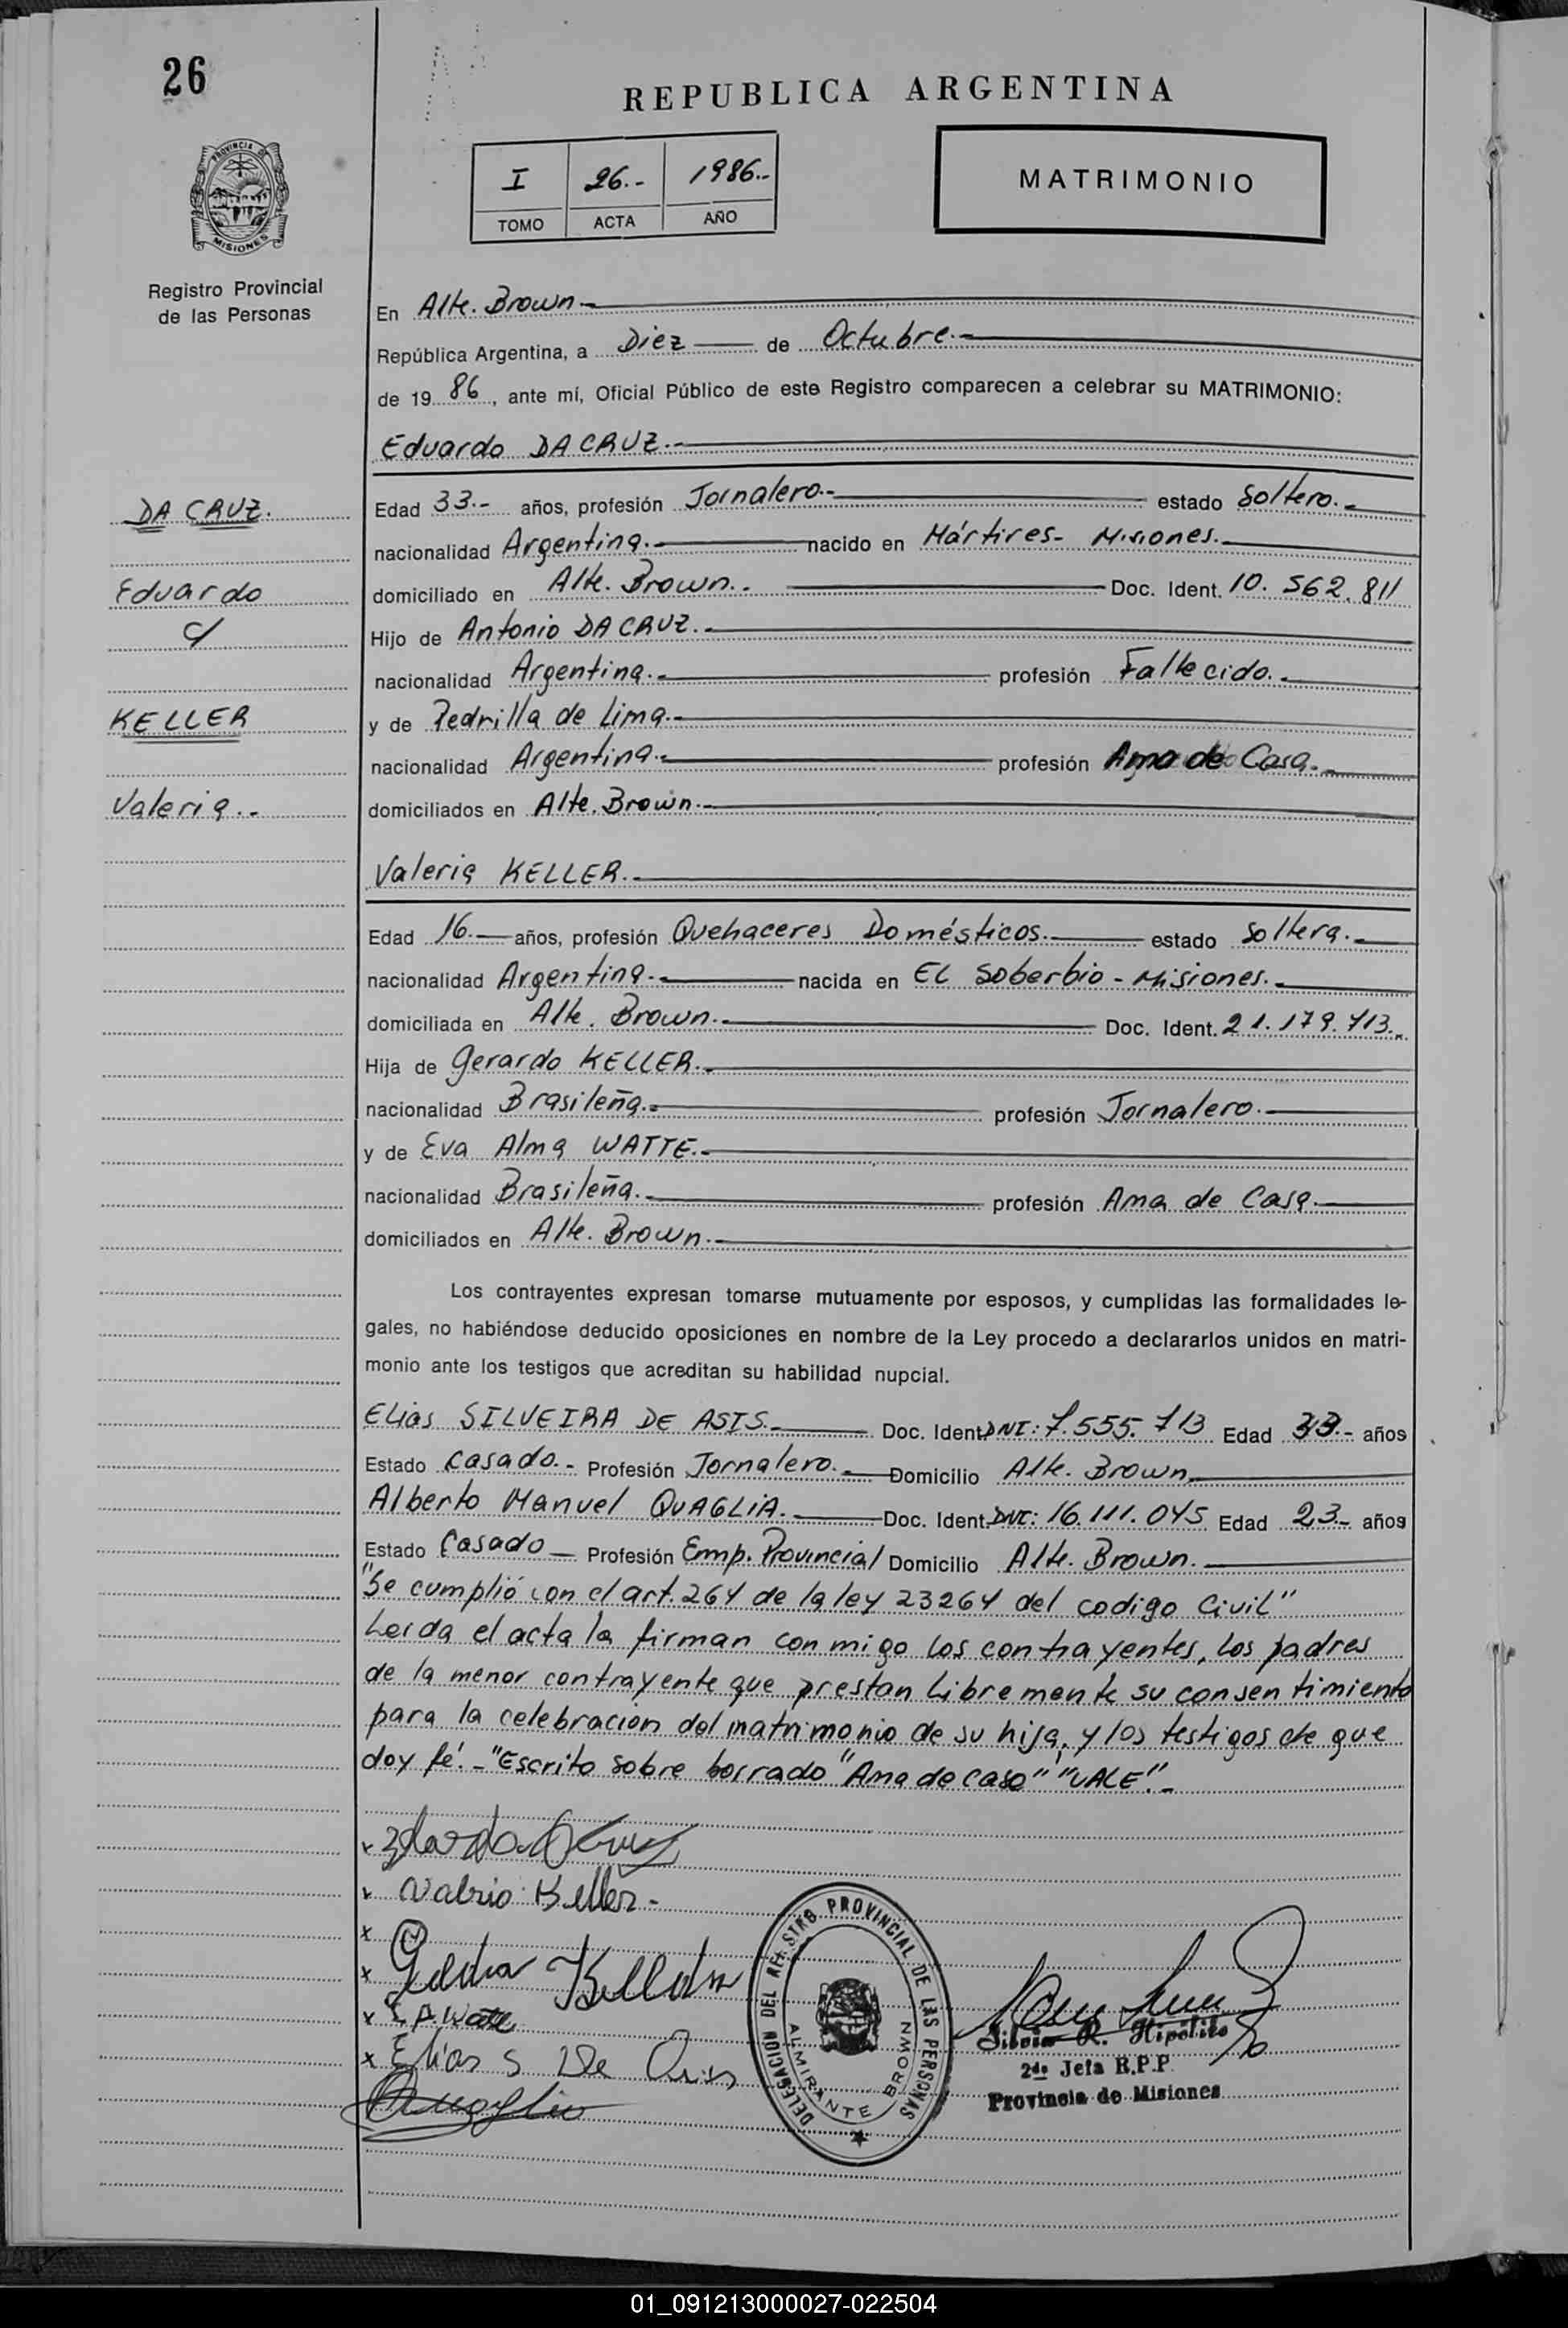 26
REPUBLICA ARGENTINA
PROVINCIA DE
MISIONES
I 26.- 1986.-
TOMO ACTA AÑO
MATRIMONIO
Registro Provincial
de las Personas
En Alte. Brown.-
República Argentina, a Diez de Octubre.-
de 19 86, ante mí, Oficial Público de este Registro comparecen a celebrar su MATRIMONIO:
Eduardo DA CRUZ.-
DA CRUZ.
Eduardo
c/
KELLER
Valeria.-
Edad 33.- años, profesión Jornalero.- estado Soltero.-
nacionalidad Argentina.- nacido en Mártires- Misiones.-
domiciliado en Alte. Brown.- Doc. Ident. 10.562.811
Hijo de Antonio DA CRUZ.-
nacionalidad Argentina.- profesión Fallecido.-
y de Pedrilla de Lima.-
nacionalidad Argentina.- profesión Ama de Casa.-
domiciliados en Alte. Brown.-
Valeria KELLER.-
Edad 16.- años, profesión Quehaceres Domésticos.- estado Soltera.-
nacionalidad Argentina.- nacida en El Soberbio - Misiones.-
domiciliada en Alte. Brown.- Doc. Ident. 21.179.713.-
Hija de Gerardo KELLER.-
nacionalidad Brasileña.- profesión Jornalero.-
y de Eva Alma WATTE.-
nacionalidad Brasileña.- profesión Ama de Casa.-
domiciliados en Alte. Brown.-
Los contrayentes expresan tomarse mutuamente por esposos, y cumplidas las formalidades le-
gales, no habiéndose deducido oposiciones en nombre de la Ley procedo a declararlos unidos en matri-
monio ante los testigos que acreditan su habilidad nupcial.
Elias SILVEIRA DE ASIS.- Doc. Ident. DNI: 7.555.713 Edad 33.- años
Estado Casado.- Profesión Jornalero.- Domicilio Alte. Brown
Alberto Manuel QUAGLIA.- Doc. Ident. DNI: 16.111.045 Edad 23.- años
Estado Casado Profesión Emp. Provincial Domicilio Alte. Brown.
"Se cumplió con el art. 264 de la ley 23264 del codigo Civil"
Leida el acta la firman conmigo los contrayentes, los padres
de la menor contrayente que prestan libremente su consentimiento
para la celebracion del matrimonio de su hija, y los testigos de que
doy fé.- "Escrito sobre borrado "Ama de casa" "VALE".-
x
x Valeria Keller-
x
x Keller
x E. A. Watte
x Elias S De Asis
DELEGACION DEL REGISTRO PROVINCIAL DE LAS PERSONAS
ALMIRANTE BROWN
Silvia R. Hipólito
2da Jefa R.P.P.
Provincia de Misiones
01_091213000027-022504